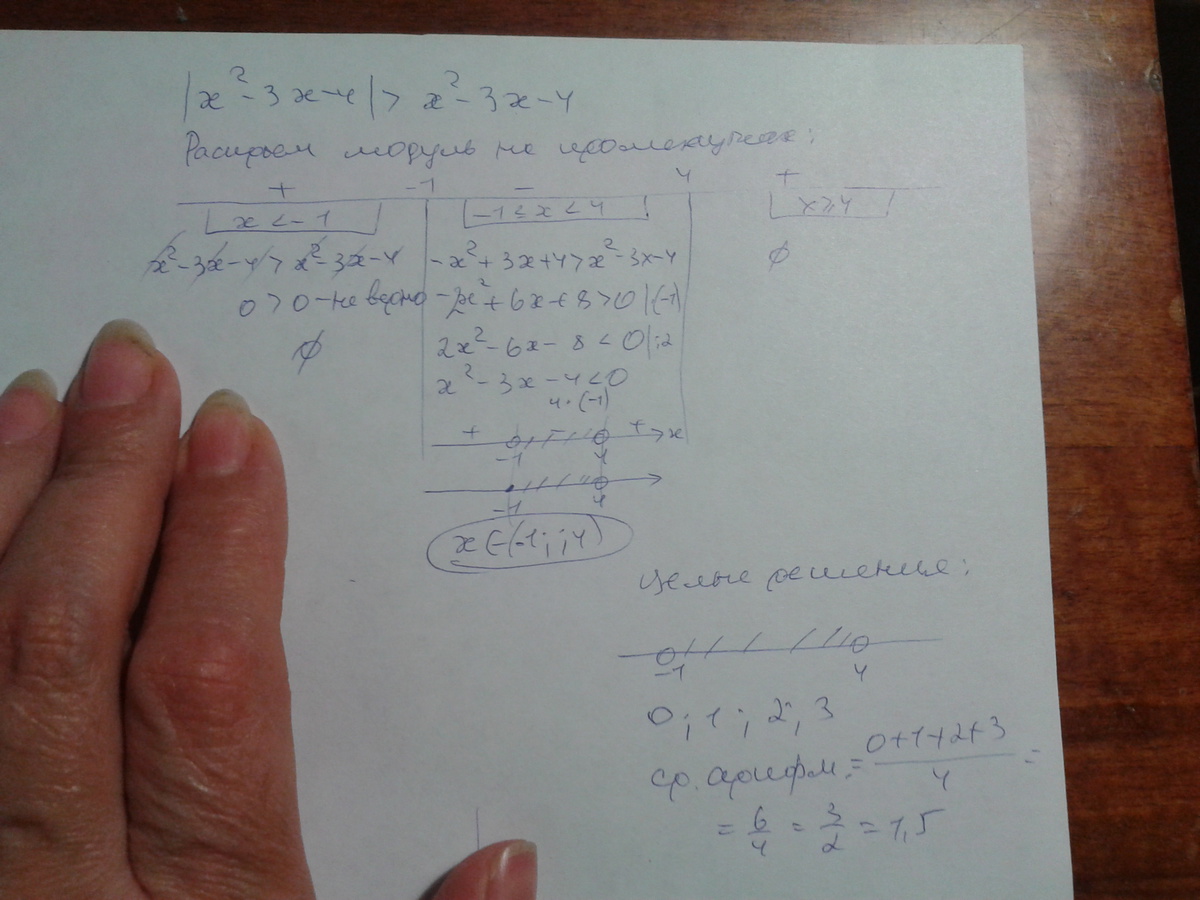 |x² - 3x - 4| > x² - 3x - 4
Раскроем модуль на промежутках:
+ -1 - 4 +
x < -1
x² - 3x - 4 > x² - 3x - 4
0 > 0 - не верно
∅
-1 ≤ x < 4
-x² + 3x + 4 > x² - 3x - 4
-2x² + 6x + 8 > 0 |(-1)
2x² - 6x - 8 < 0 |:2
x² - 3x - 4 < 0
4 · (-1)
+ - + x
-1 4
-1 4
x ∈ (-1; ; 4)
x ≥ 4
∅
Целые решения:
-1 4
0 ; 1 ; 2 ; 3
ср. арифм. = (0+1+2+3)/4 =
= 6/4 = 3/2 = 1,5